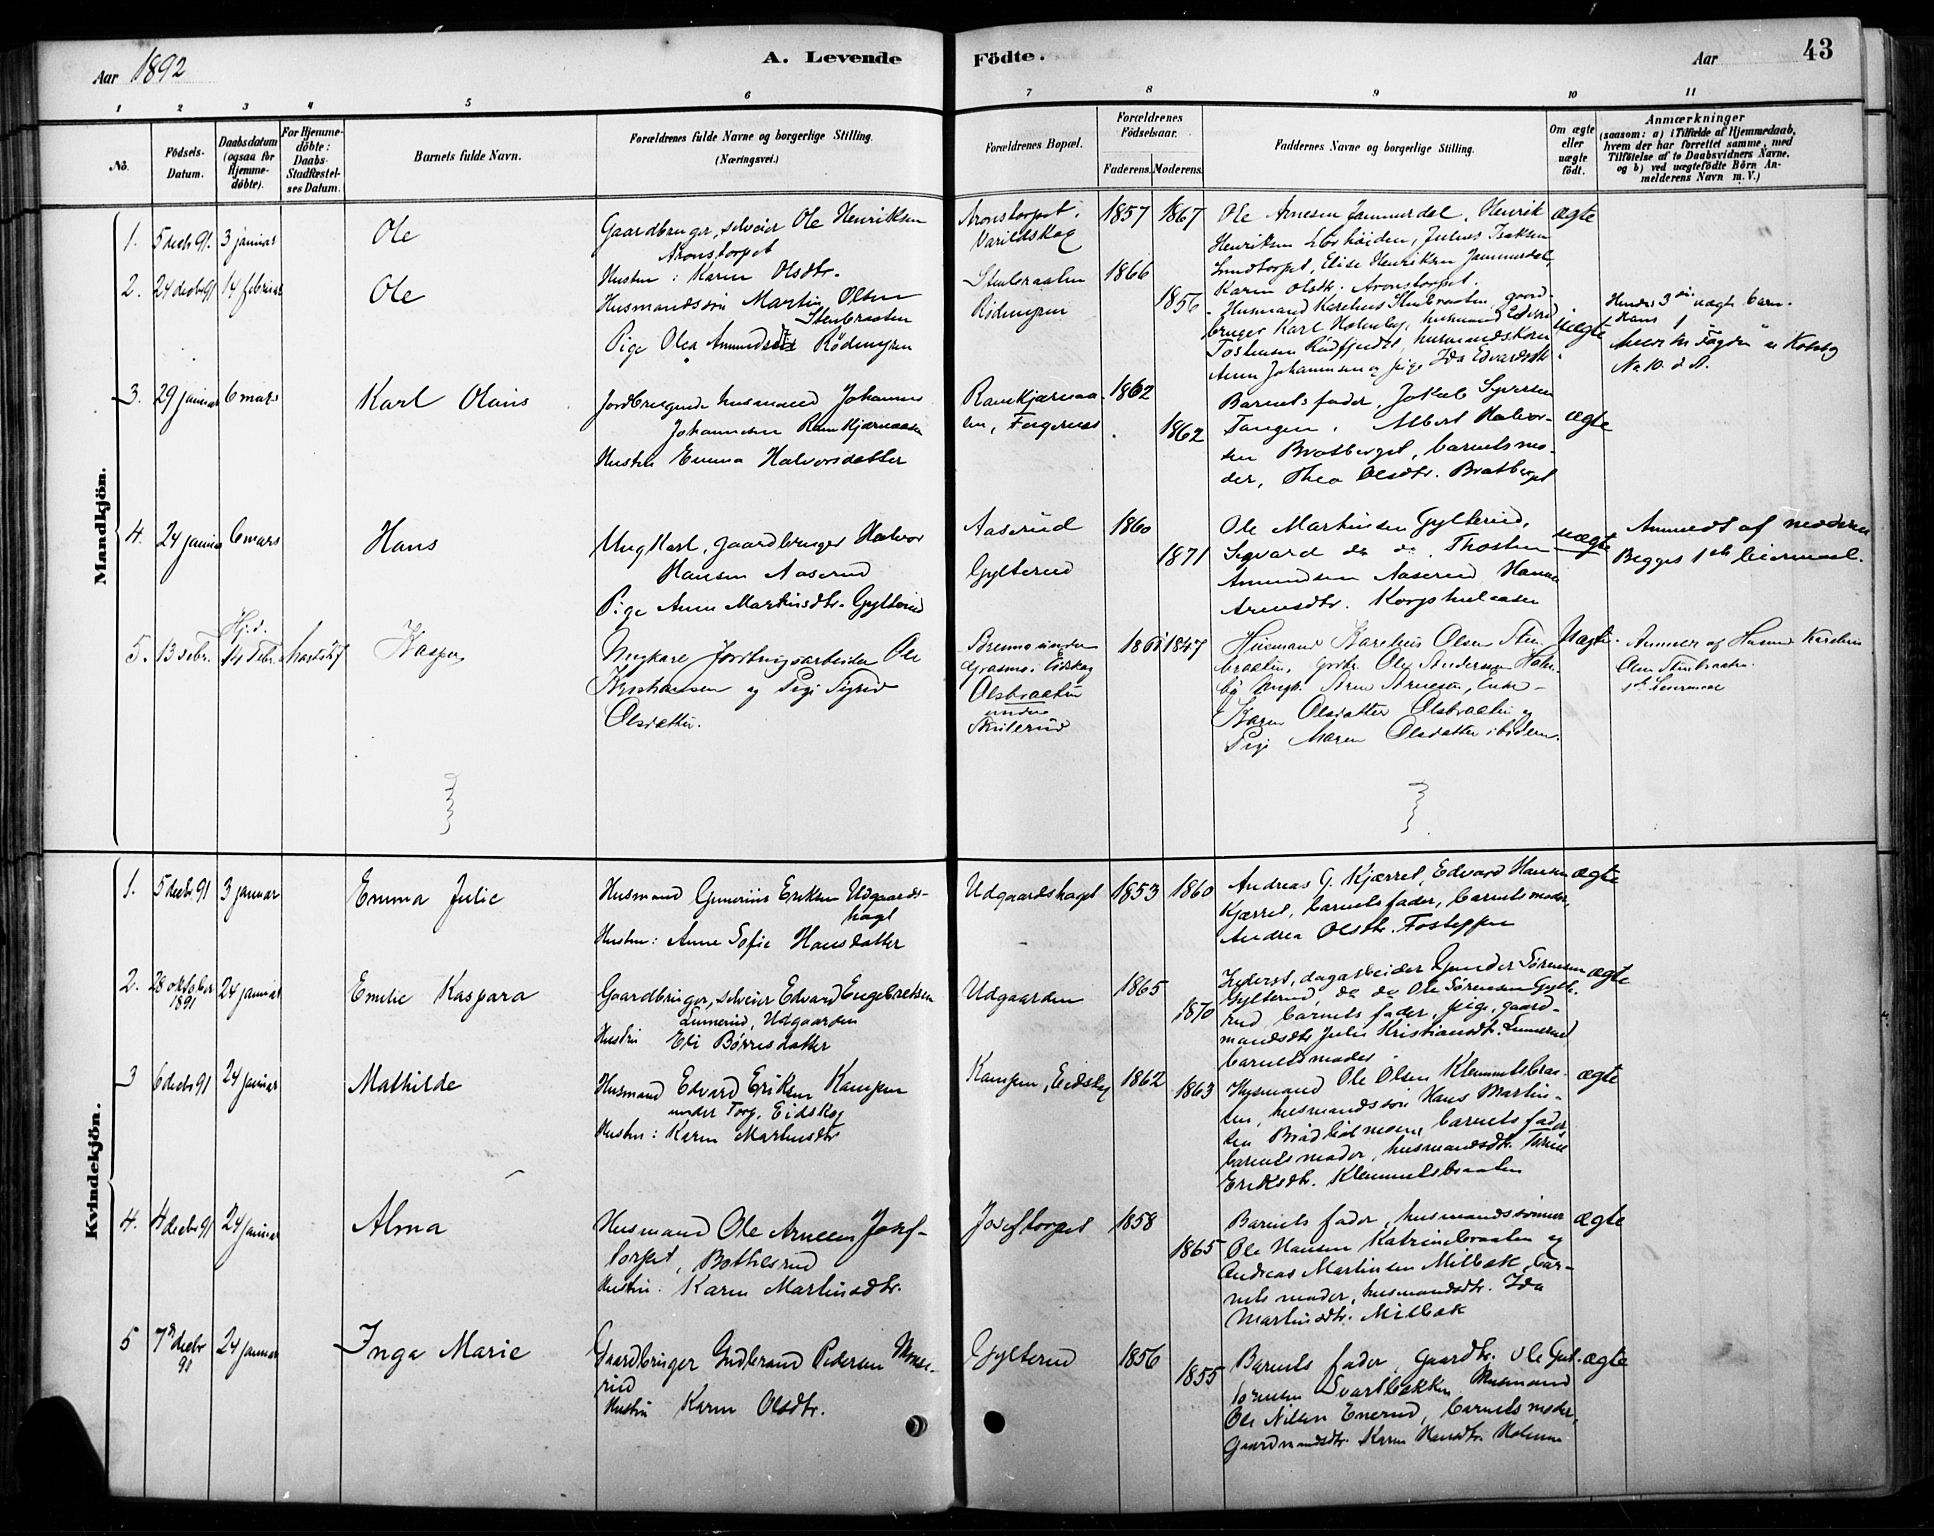 Aar 1892
A. Levende
Födte.
Aar
43
1 2 3 4 5 6 7 8 9 10 11
No.
Födsels-
Datum.
Daabsdatum
(ogsaa for
Hjemme-
döbte).
For Hjemme-
döbte:
Daabs-
Stadfæstel-
ses Datum.
Barnets fulde Navn.
Forældrenes fulde Navne og borgerlige Stilling.
(Næringsvei.)
Forældrenes Bopæl.
Forældrenes
Födselsaar.
Faderens. Moderens.
Faddernes Navne og borgerlige Stilling.
Om ægte
eller
uægte
födt.
Anmærkninger
(saasom: a) i Tilfælde af Hjemmedaab,
hvem der har forrettet samme, med
Tilföielse af to Daabsvidners Navne,
og b) ved uægtefödte Börn An-
melderens Navn m. V.)
Mandkjön.
1. 5 decb 91. 3 januar
Ole
Gaardbruger, selveier Ole Henriksen
Aronstorpet
Hustru: Karen Olsdtr.
Aronstorpet,
Varildskog
1857 1867
Ole Arnesen Jammerdal, Henrik
Henriksen, Julius Isaksen
Elise Henriksen Jammerdal,
Karen Olsdtr. Aronstorpet.
ægte
2. 24 decb 91 14 februar
Ole
Husmandssøn Martin Olsen
Stenbraaten
Pige Olea Amundsdtr Rödemyren
Stenbraaten
Rödemyren
1866
1856
Husmand Karelius Stenbraaten, gaard-
bruger Karl Holeby, husmand Edvard
husmandskone
Anne Johannesen og pige Ida Edvardsdtr.
uægte
Hendes 3die uægte barn.
Hans 1
No 10. d. A.
3. 29 januar 6 mars
Karl Olaus
Jordbrugende husmand Johannes
Johannesen Ramkjærnaasen
Hustru Emma Halvorsdatter
Ramkjærnaa-
sen,
1862
1862
Barnets fader, Jakob Syversen
Tangen, Albert Halvor-
sen Bratberget, barnets mo-
der, Thea Olsdtr. Bratberget
ægte
4. 24 januar 6 mars
Hans
Ungkarl, gaardbruger Halvor
Hansen Aaserud
Pige Anne Martinsdtr. Gylterud
Aaserud
Gylterud
1860
1871
Ole Martinsen Gylterud,
Sigvard do do, Thosten
Amundsen Aaserud, Hanna
Arnesdtr.
uægte
Anmeldt af moderen
Begges 1ste leiermaal.
5. 13 Febr. Hj. d. 14 Febr.
Kaspar
Ungkarl Jordbrugsarbeider Ole
Kristiansen og Pige Sigrid
Olsdatter.
Eidskog
Olsbraaten
under
Skulerud
1861 1847
Husmand Karelius Olsen Sten-
braaten, Ole Andersen Hole-
by, Ungk. Arne Arnesen, Enke
Karen Olsdatter Olsbraaten og
Pige Maren Olsdatter ibidem.
Uægte.
Anmeldt af Husmd Karelius
Olsen Stenbraaten.
1ste Leiermaal
Kvindekjön.
1. 5 decb 91 3 januar
Emma Julie
Husmand Gunerius Eriksen Udgaards-
haget
Hustru: Anne Sofie Hansdatter
Udgaardshaget
1853 1860
Andreas G. Kjærret, Edvard Hansen
Kjærret, barnets fader, barnets moder,
Andrea Olsdtr. Fosteppen
ægte
2. 28 oktober 1891 24 januar
Emilie Kaspara
Gaardbruger, selveier Edvard Engebretsen
Lunnerud, Udgaarden
Hustru Eli Börresdatter
Udgaarden
1865
1870
Inderst, dagarbeider Gunder Sörensen
Gylterud, do do Ole Sörensen Gylte-
rud, barnets fader, pige, gaard-
mandsdtr. Julie Kristiansdtr. Lunnerud
barnets moder.
ægte
3 6 decb 91 24 januar
Mathilde
Husmand Edvard Eriksen Kampen
under Torp, Eidskog
Hustru: Karen Martinsdtr
Kampen, Eidskog
1862
1863
Husmand Ole Olsen Klemmetsbraa-
ten, husmandssøn Hans Martin-
sen, barnets fader,
barnets moder, husmandsdtr.
Eriksdtr. Klemmetsbraaten
ægte
4. 4 decb 91 24 januar
Alma
Husmand Ole Arnesen Josef-
torpet, Bottilsrud
Hustru: Karen Martinsdtr.
Joseftorpet
1858
1865
Barnets fader, husmandssönner
Ole Hansen Katrinebraaten og
Andreas Martinsen Milbak, bar-
nets moder, husmandsdtr. Ida
Martinsdtr. Milbak
ægte
5 7de decbr 91 24 januar
Inga Marie
Gaardbruger Gudbrand Pedersen
rud
Hustru Karen Olsdtr.
Gylterud
1856
1855
Barnets fader, Gaardbr. Ole Gut-
tormsen Svartbakken, Husmand
Ole Nilsen Enerud, barnets moder,
Gaardmandsdtr. Karen Hansdtr.
ægte